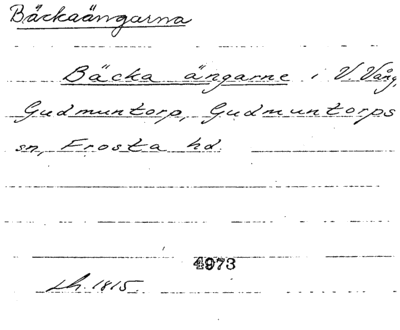 Bäckaängarna
Bäcka ängarne i V. Vång,
Gudmuntorp, Gudmuntorps
sn, Frosta hd.
4973
Lh. 1815.